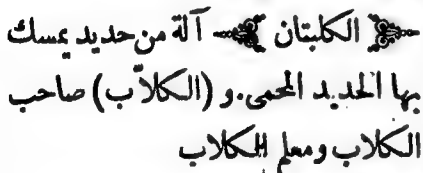 الكلبتان آلة من حديد يمسك
بها الحديد المحمى. و (الكلاّب) صاحب
الكلاب ومعلم للكلاب